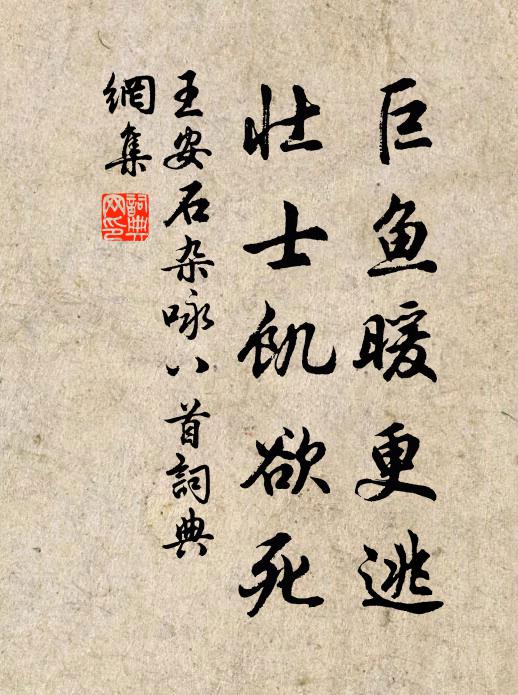 巨鱼暖更逃
壮士飢欲死
王安石杂咏八首詞典
網集
詞典网印